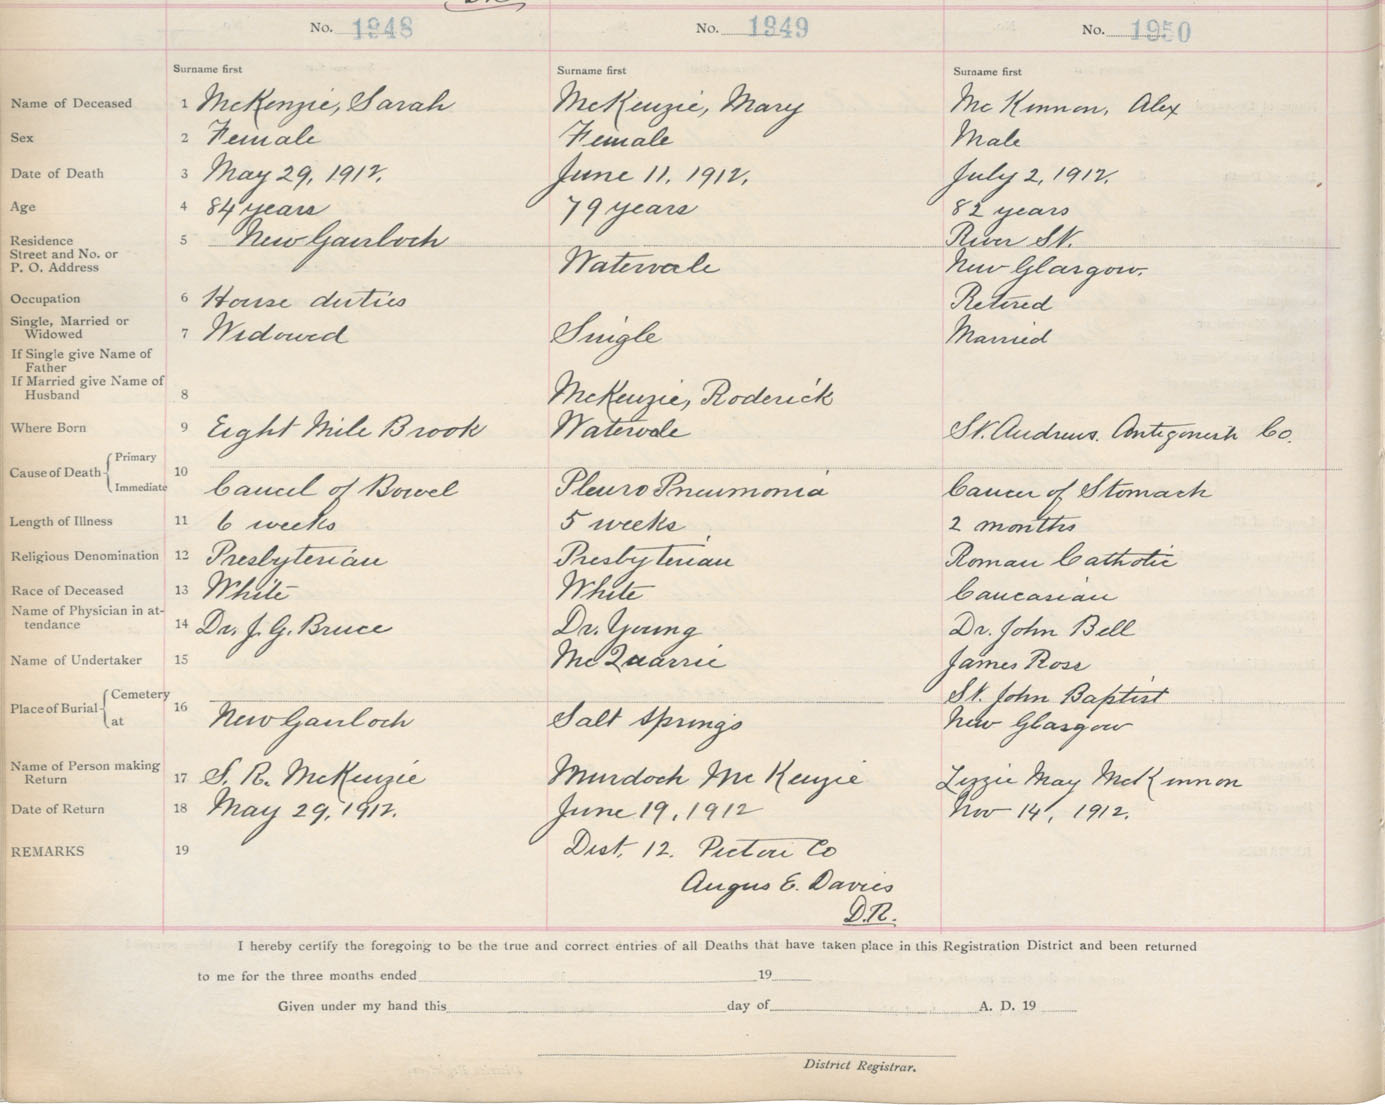 No. 1948 No. 1949 No. 1950
Surname first Surname first Surname first
Name of Deceased 1 McKenzie, Sarah McKenzie, Mary McKinnon, Alex
Sex 2 Female Female Male
Date of Death 3 May 29, 1912. June 11, 1912. July 2, 1912.
Age 4 84 years 79 years 82 years
Residence 5 New Gairloch River St.
Street and No. or
P. O. Address Watervale New Glasgow.
Occupation 6 House duties Retired
Single, Married or
Widowed 7 Widowed Single Married
If Single give Name of
Father
If Married give Name of
Husband 8 McKenzie, Roderick
Where Born 9 Eight Mile Brook Watervale St. Andrews. Antigonish Co.
Cause of Death Primary 10
Immediate Cancel of Bowel Pleuro Pneumonia Cancer of Stomach
Length of Illness 11 6 weeks 5 weeks 2 months
Religious Denomination 12 Presbyterian Presbyterian Roman Catholic
Race of Deceased 13 White White Caucasian
Name of Physician in at-
tendance 14 Dr. J. G. Bruce Dr. Young Dr. John Bell
Name of Undertaker 15 McQuarrie James Ross
Place of Burial Cemetery 16 St. John Baptist
at New Gairloch Salt Springs New Glasgow
Name of Person making
Return 17 S. R. McKenzie Murdoch McKenzie Lizzie May McKinnon
Date of Return 18 May 29, 1912. June 19, 1912 Nov 14, 1912.
REMARKS 19 Dist. 12. Pictou Co
Angus E. Davies
D.R.
I hereby certify the foregoing to be the true and correct entries of all Deaths that have taken place in this Registration District and been returned
to me for the three months ended 19
Given under my hand this day of A. D. 19
District Registrar.